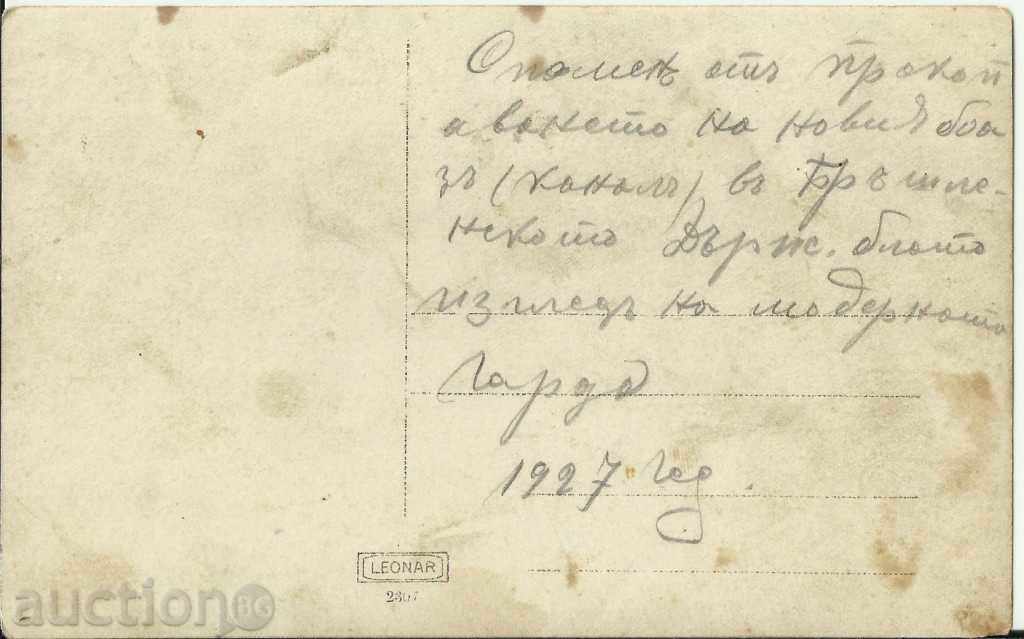 Споменъ отъ прокоп
аването на новиѣ боа
зъ (каналъ) въ Бръшле-
нското Държ. блато
изгледъ на модерната
Гарда
1927 год.
LEONAR
2307
auction BG